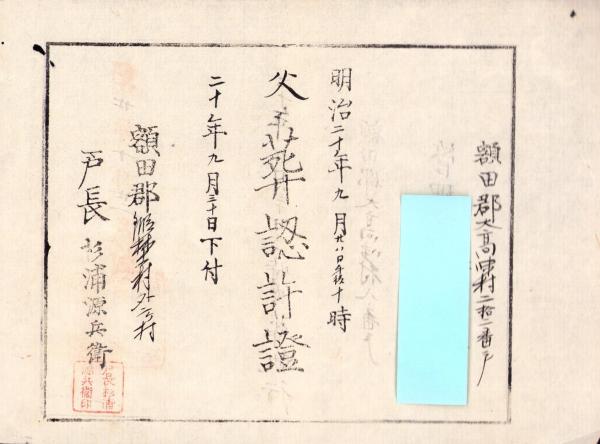 額田郡大高味村二拾二番戸
明治二十年九月廿八日午後十時
火葬認許證
二十年九月三十日下付
額田郡
戸長 杉浦源兵衛
戸長杉浦源兵衛印